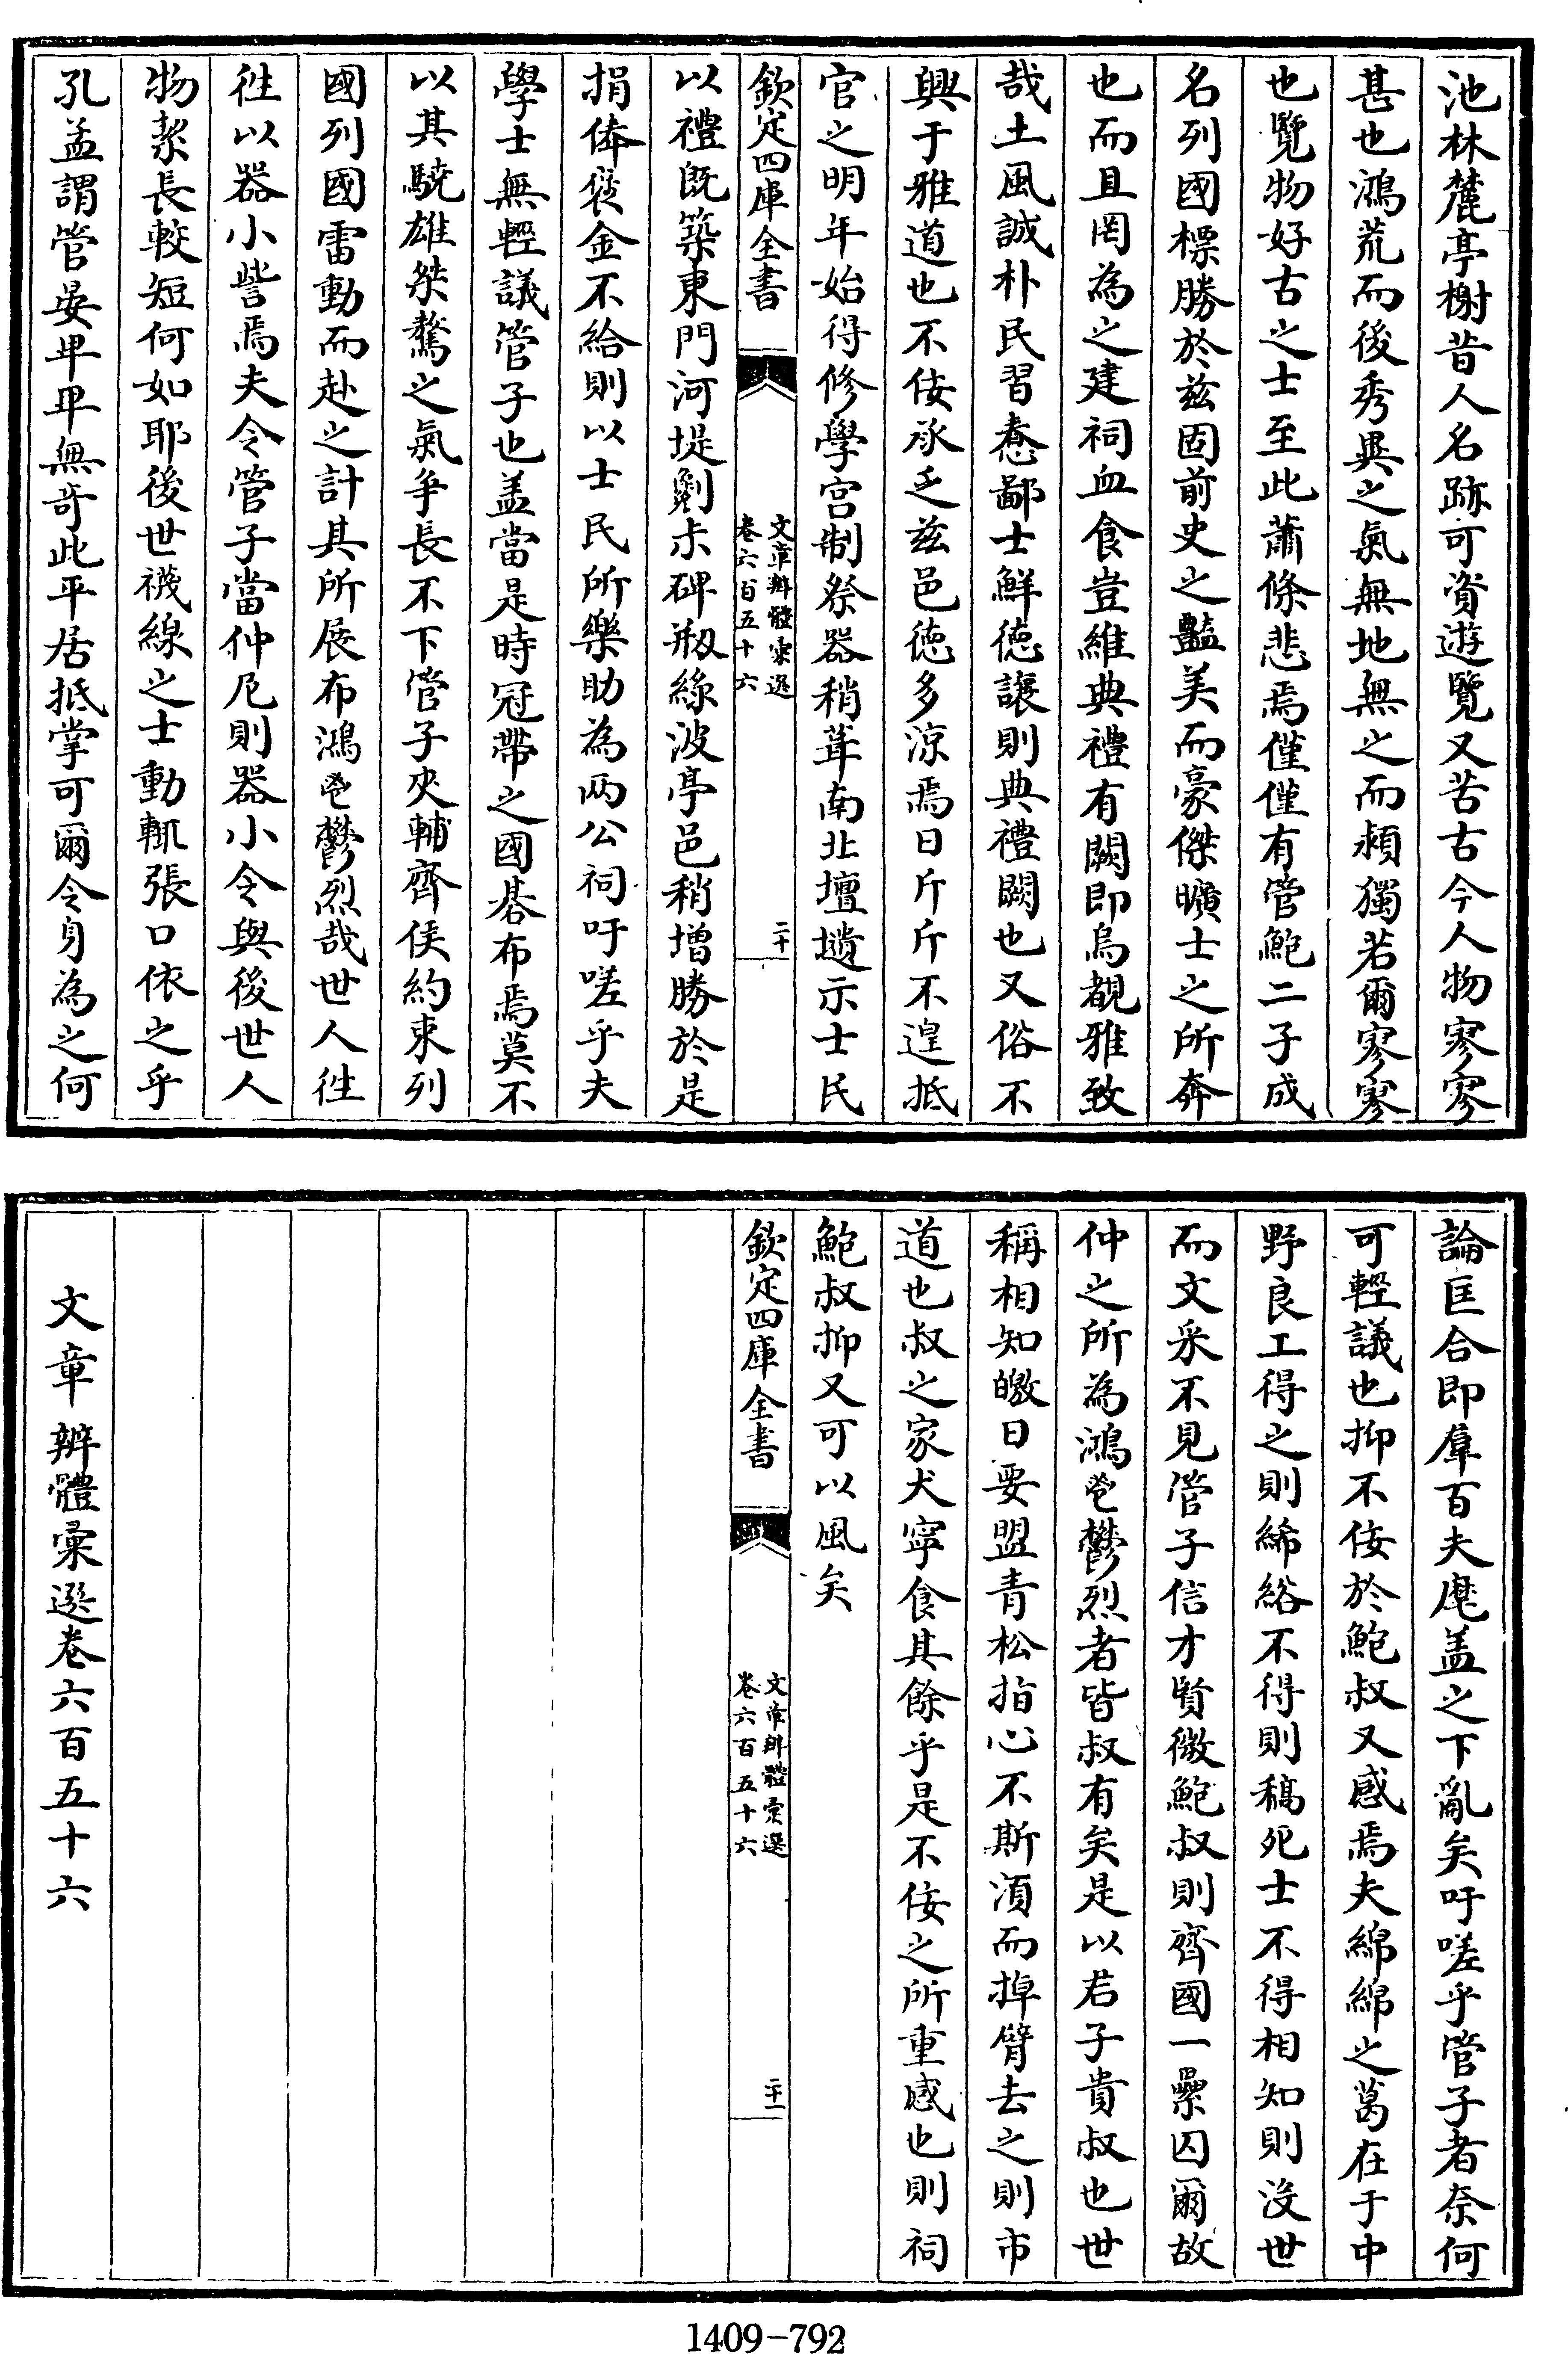 池林麓亭榭昔人名跡可資遊覽又苦古今人物寥寥
甚也鴻荒而後秀異之氣無地無之而潁獨若爾寥寥
也覽物好古之士至此蕭條悲焉僅僅有管鮑二子成
名列國標勝於兹固前史之豔美而豪傑曠士之所奔
也而且罔為之建祠血食豈維典禮有闕即烏覩雅致
哉土風誠朴民習惷鄙士鮮徳讓則典禮闕也又俗不
興于雅道也不佞承乏兹邑徳多涼焉日斤斤不遑抵
官之明年始得修學宫制祭器稍葺南北壇壝示士民
欽定四庫全書
文章辨體彙選
卷六百五十六
二十
以禮既築東門河堤劖未碑剏綠波亭邑稍增勝於是
捐俸裒金不給則以士民所樂助為两公祠吁嗟乎夫
學士無輕議管子也盖當是時冠帶之國碁布焉莫不
以其驍雄桀驁之氣争長不下管子夾輔齊侯約束列
國列國雷動而赴之計其所展布鴻鬯鬱烈哉世人徃
徃以器小訾焉夫令管子當仲尼則器小令與後世人
物絜長較短何如耶後世襪線之士動輒張口依之乎
孔孟謂管晏卑卑無竒此平居抵掌可爾令身為之何
論匡合即羣百夫麾盖之下亂矣吁嗟乎管子者奈何
可輕議也抑不佞於鮑叔又感焉夫綿綿之葛在于中
野良工得之則絺綌不得則稿死士不得相知則没世
而文采不見管子信才賢微鮑叔則齊國一纍囚爾故
仲之所為鴻鬯鬱烈者皆叔有矣是以君子貴叔也世
稱相知皦日要盟青松指心不斯湏而掉臂去之則市
道也叔之家犬寜食其餘乎是不佞之所重感也則祠
鮑叔抑又可以風矣
欽定四庫全書
文章辨體彙選
卷六百五十六
二十一
文章辨體彙選卷六百五十六
1409-792